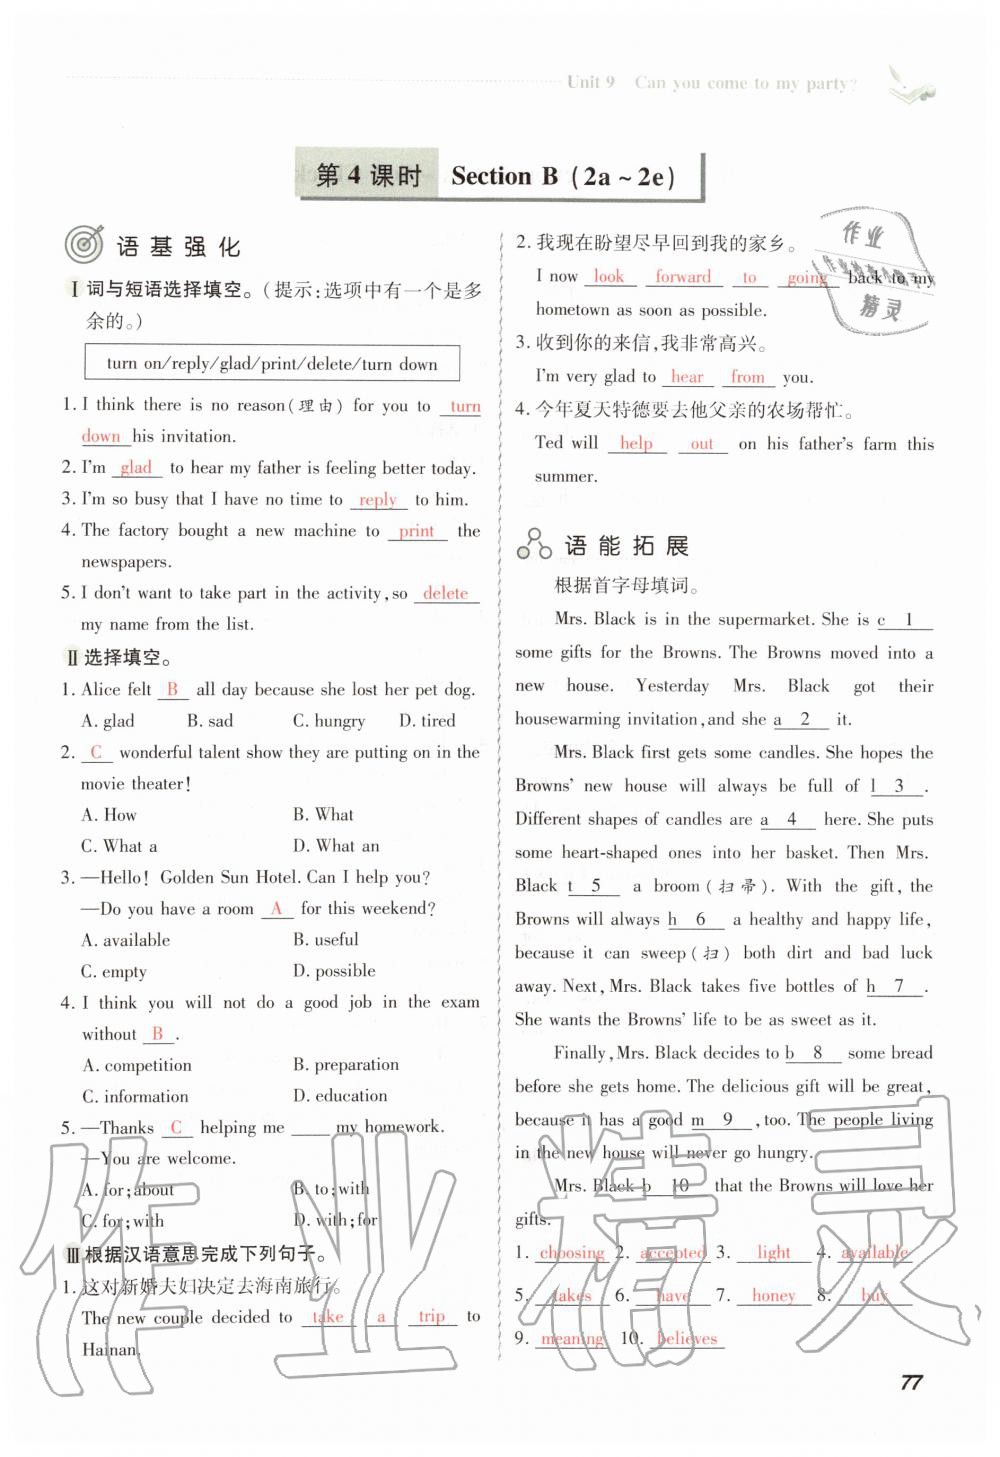 Unit 9 Can you come to my party?
第 4 课时 Section B (2a ~ 2e)
语 基 强 化
Ⅰ 词与短语选择填空。(提示:选项中有一个是多
余的。)
turn on/reply/glad/print/delete/turn down
1. I think there is no reason(理由) for you to turn
down his invitation.
2. I'm glad to hear my father is feeling better today.
3. I'm so busy that I have no time to reply to him.
4. The factory bought a new machine to print the
newspapers.
5. I don't want to take part in the activity,so delete
my name from the list.
Ⅱ 选择填空。
1. Alice felt B all day because she lost her pet dog.
A. glad B. sad C. hungry D. tired
2. C wonderful talent show they are putting on in the
movie theater!
A. How B. What
C. What a D. What an
3. —Hello! Golden Sun Hotel. Can I help you?
—Do you have a room A for this weekend?
A. available B. useful
C. empty D. possible
4. I think you will not do a good job in the exam
without B .
A. competition B. preparation
C. information D. education
5. —Thanks C helping me ____ my homework.
—You are welcome.
A. for;about B. to;with
C. for;with D. with;for
Ⅲ 根据汉语意思完成下列句子。
1. 这对新婚夫妇决定去海南旅行。
The new couple decided to take a trip to
Hainan.
2. 我现在盼望尽早回到我的家乡。
I now look forward to going back to my
hometown as soon as possible.
3. 收到你的来信,我非常高兴。
I'm very glad to hear from you.
4. 今年夏天特德要去他父亲的农场帮忙。
Ted will help out on his father's farm this
summer.
语 能 拓 展
根据首字母填词。
Mrs. Black is in the supermarket. She is c 1
some gifts for the Browns. The Browns moved into a
new house. Yesterday Mrs. Black got their
housewarming invitation,and she a 2 it.
Mrs. Black first gets some candles. She hopes the
Browns' new house will always be full of l 3 .
Different shapes of candles are a 4 here. She puts
some heart-shaped ones into her basket. Then Mrs.
Black t 5 a broom(扫帚). With the gift, the
Browns will always h 6 a healthy and happy life,
because it can sweep(扫) both dirt and bad luck
away. Next,Mrs. Black takes five bottles of h 7 .
She wants the Browns' life to be as sweet as it.
Finally,Mrs. Black decides to b 8 some bread
before she gets home. The delicious gift will be great,
because it has a good m 9 ,too. The people living
in the new house will never go hungry.
Mrs. Black b 10 that the Browns will love her
gifts.
1. choosing 2. accepted 3. light 4. available
5. takes 6. have 7. honey 8. buy
9. meaning 10. believes
77
作业
精灵
作业精灵